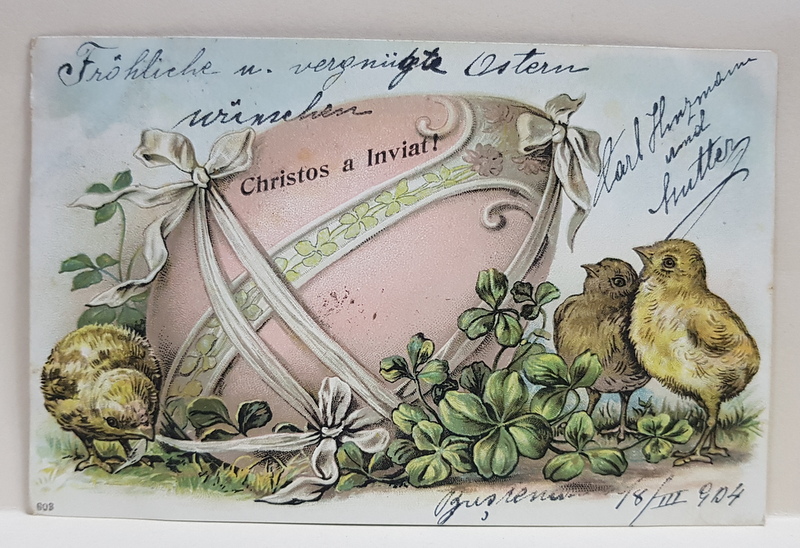 Fröhliche u. vergnügte Ostern
wünschen
Christos a Inviat!
Karl Hinzmann
und
Mutter
Bușteni 18/III 904